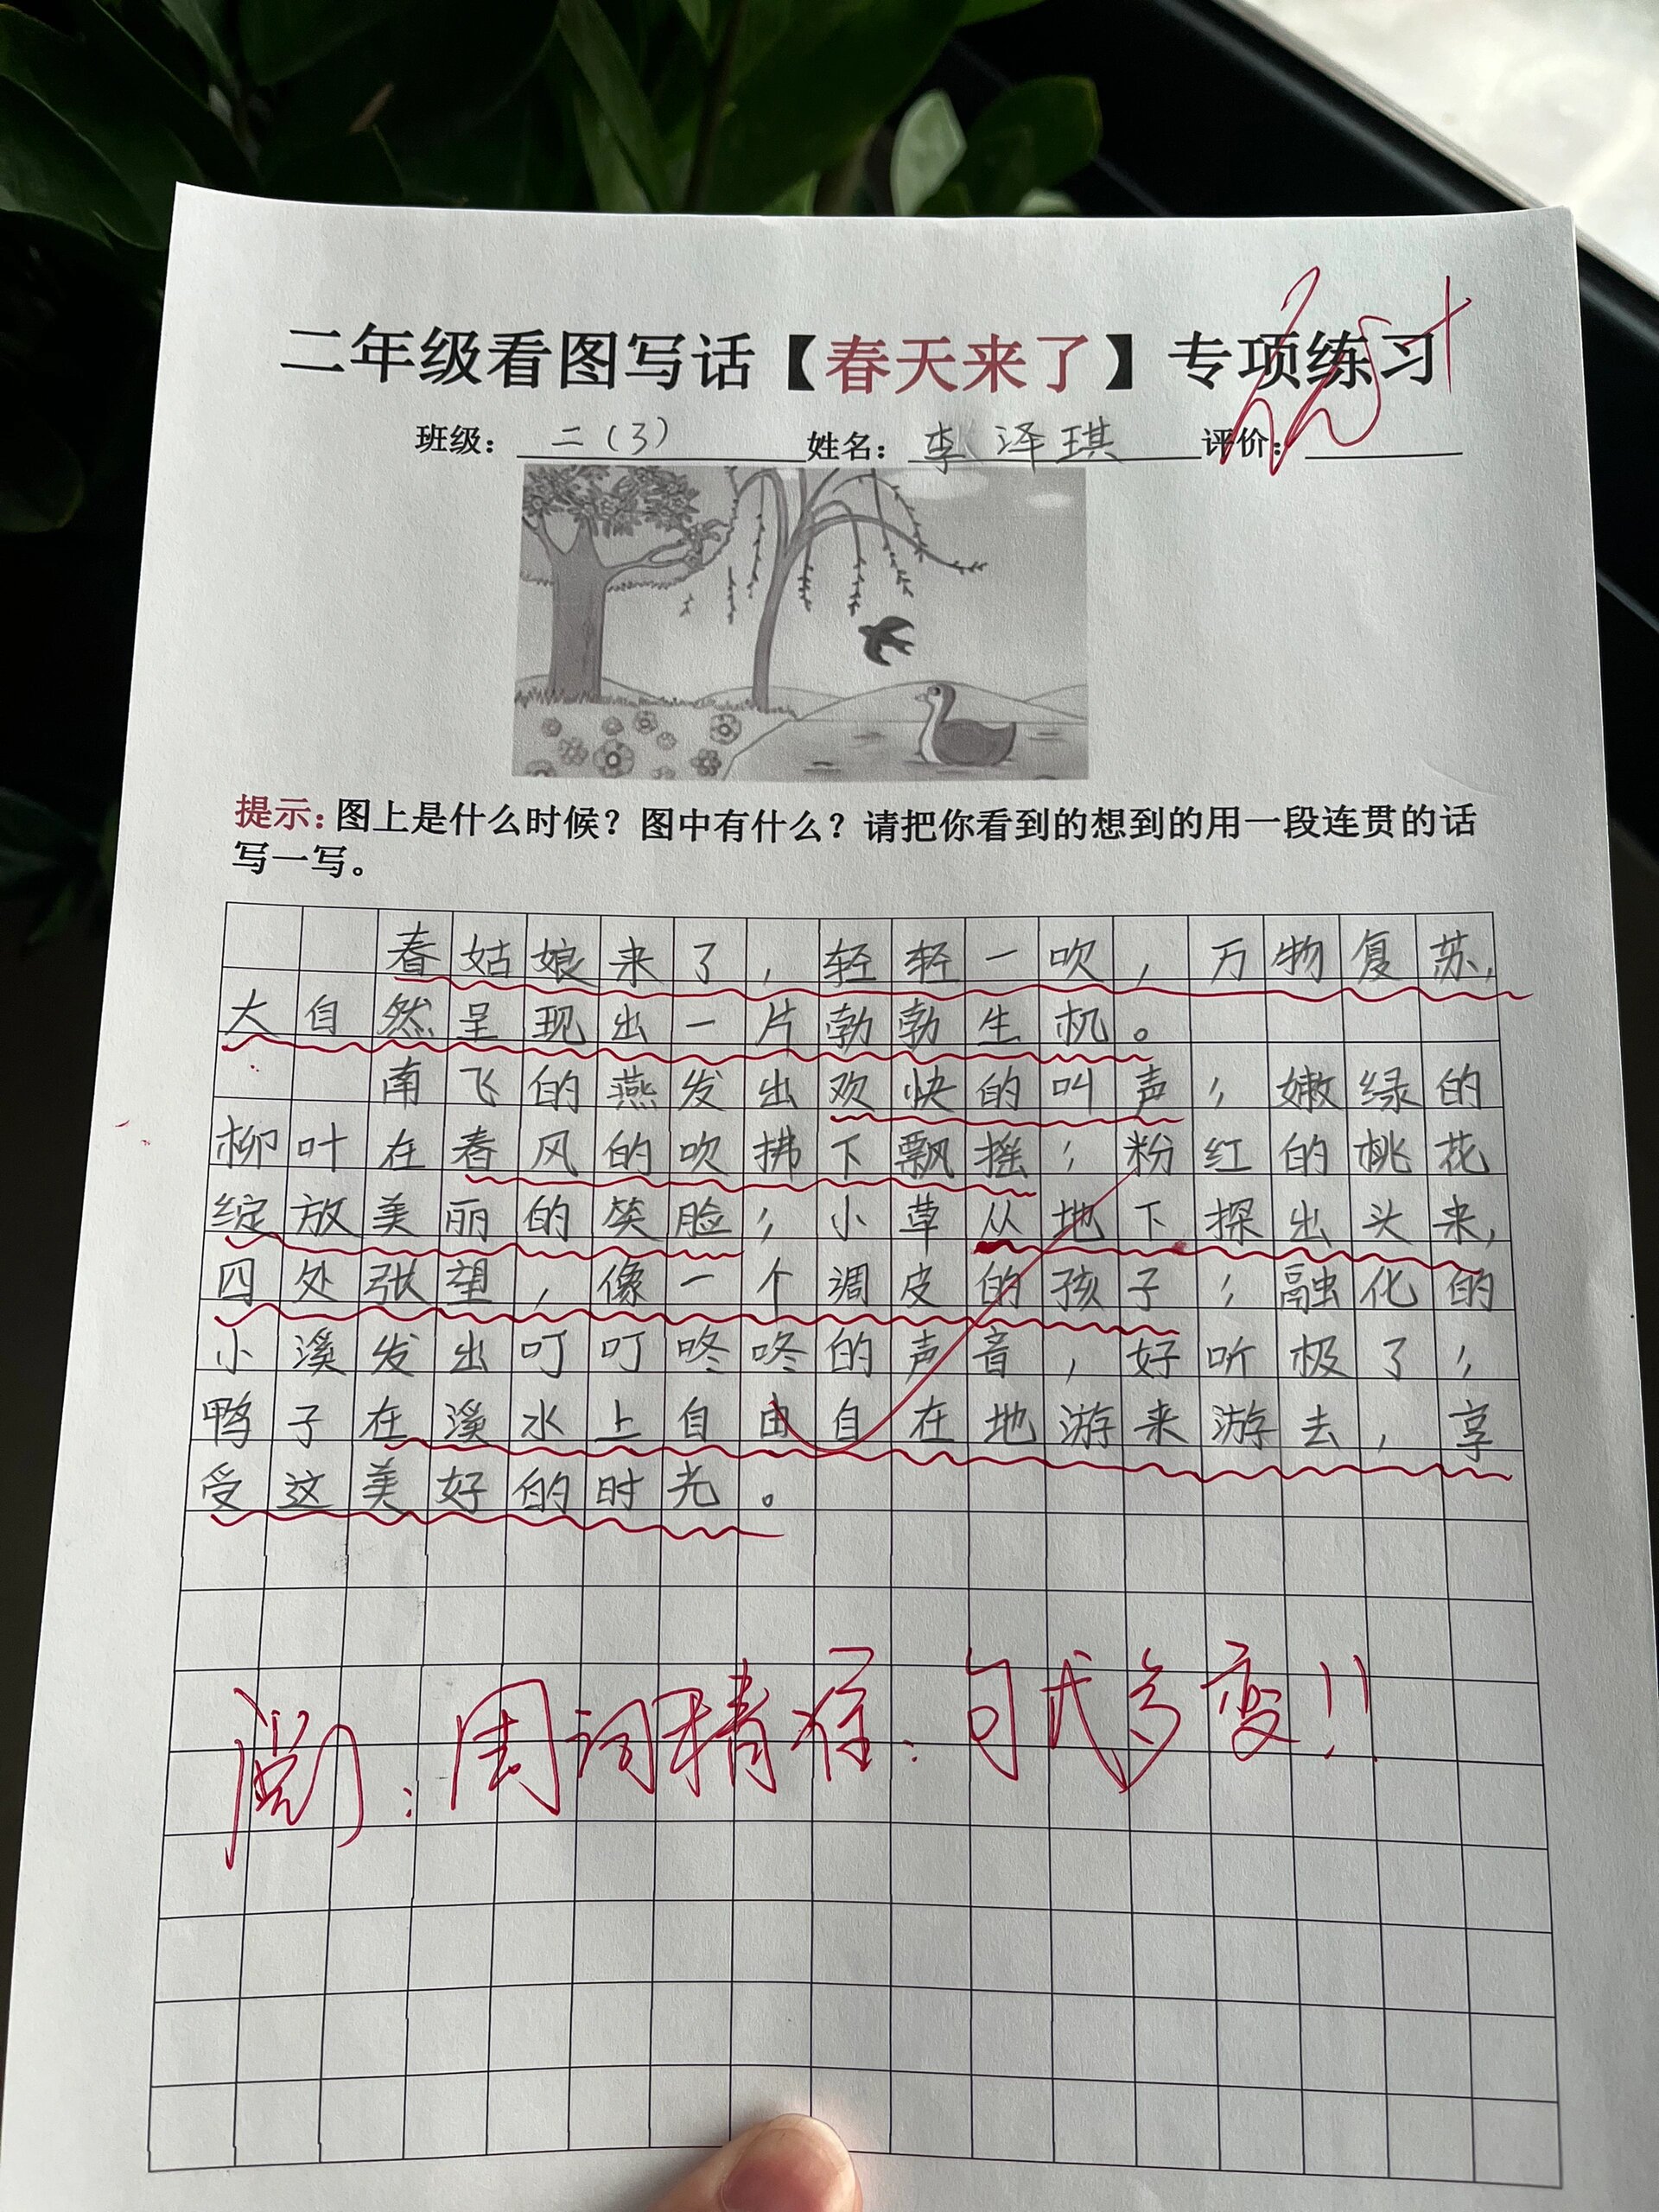 二年级看图写话【春天来了】专项练习
班级：二（3） 姓名：李泽琪 评价：
提示：图上是什么时候？图中有什么？请把你看到的想到的用一段连贯的话
写一写。
春姑娘来了，轻轻一吹，万物复苏，
大自然呈现出一片勃勃生机。
南飞的燕发出欢快的叫声；嫩绿的
柳叶在春风的吹拂下飘摇；粉红的桃花
绽放美丽的笑脸；小草从地下探出头来，
四处张望，像一个调皮的孩子；融化的
小溪发出叮叮咚咚的声音，好听极了；
鸭子在溪水上自由自在地游来游去，享
受这美好的时光。
用词精准．句式多变！！